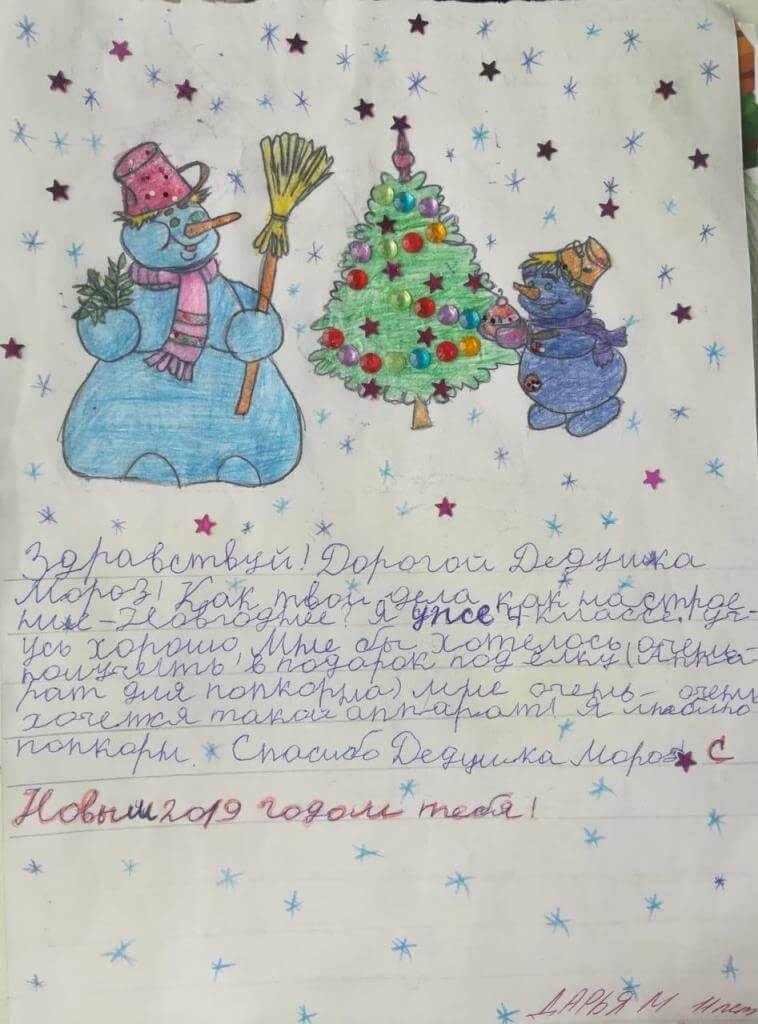 Здравствуй! Дорогой Дедушка
Мороз! Как твои дела, как настрое
ние-Новгоднее? Я уже 4 классе. Уч-
усь хорошо. Мне бы хотелось очень
получить в подарок под ёлку (Аппа-
рат для попкорна) мне очень- очень
хочется такой аппарат! Я люблю
попкорн. Спасибо Дедушка Мороз! С
Новым 2019 годом тебя!
ДАРЬЯ М 11 лет